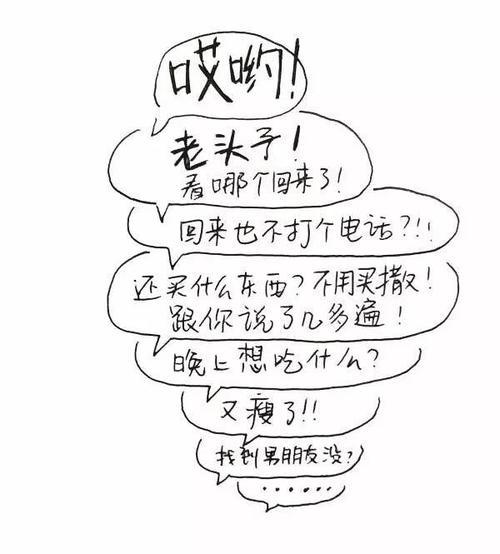 哎哟!
老头子!
看哪个回来了!
回来也不打个电话?!!
还买什么东西?不用买撒!
跟你说了几多遍!
晚上想吃什么?
又瘦了!!
找到男朋友没?
......